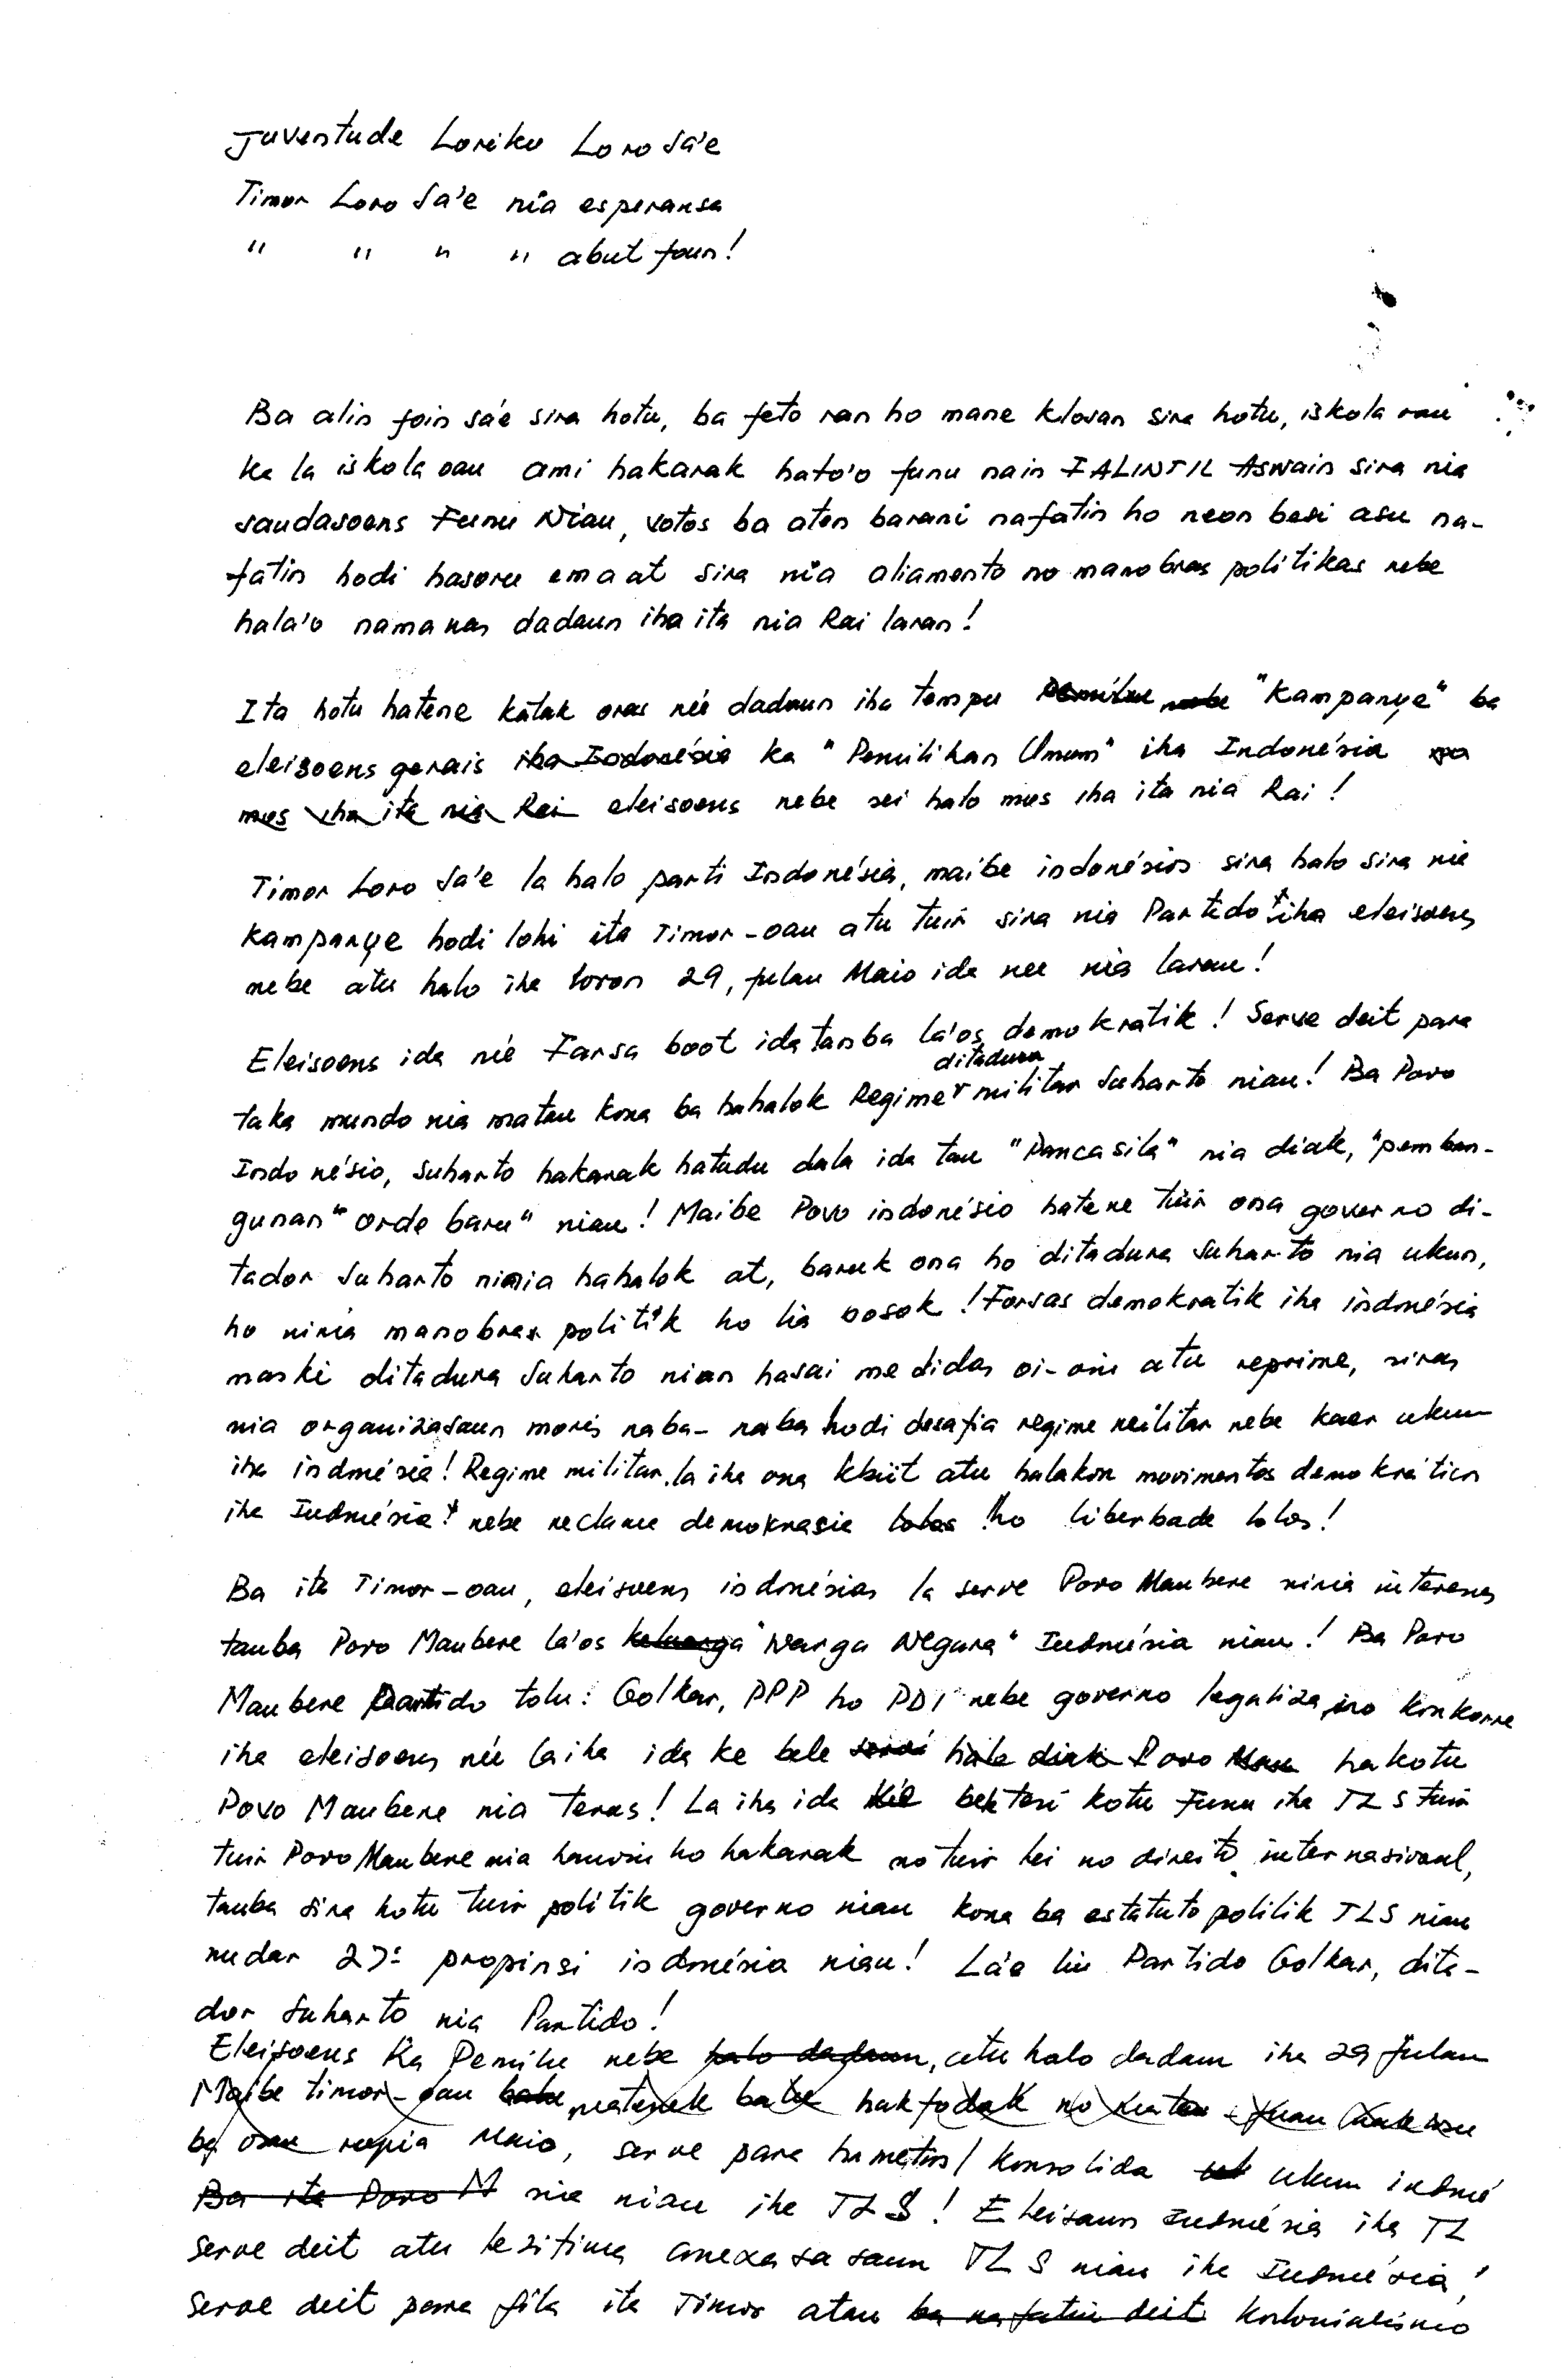 Juventude Loriku Loro Sa'e
Timor Loro Sa'e nia esperansa
" " " " abut foun!
Ba alin foin sa'e sira hotu, ba feto ran ho mane klosan sira hotu, iskola oan
ka la iskola oan ami hakarak hato'o funu nain FALINTIL Aswain sira nia
saudasoens Funu Nian, votos ba aten barani nafatin ho neon besi asu na-
fatin hodi hasoru ema at sira nia aliamento no manobras politikas nebe
hala'o namanas dadaun iha ita nia Rai laran!
Ita hotu hatene katak oras né'e dadaun iha tempu Pemilu nebe "Kampanye" ba
eleisoens gerais iha Indonésia ka "Pemilihan Umum" iha Indonésia
mus iha ita nia Rai eleisoens nebe sei halo mus iha ita nia Rai!
Timor Loro Sa'e la halo parti Indonésia, maibe indonésios sira halo sira nia
Kampanye hodi lohi ita Timor-oan atu tuir sira nia Partido iha eleisoens
nebe atu halo iha loron 29, fulan Maio ida nee nia laran!
Eleisoens ida né'e Farsa boot ida tanba la'os demokratik! Serve deit para
ditadura
taka mundo nia matan kona ba hahalok Regime militar Suharto nian! Ba Povo
Indonésio, Suharto hakarak hatudu dala ida tan "Pancasila" nia diak, "pemban-
gunan" orde baru" nian! Maibe Povo indonésio hatene tuir ona governo di-
tador Suharto ninia hahalok at, baruk ona ho ditadura Suharto nia ukun,
ho ninia manobras politik ho lia bosok! Forsas demokratik iha indonésia
maski ditadura Suharto nian hasai medidas oi-oin atu reprime, siras
nia organizasaun moris naba-naba hodi desafia regime militar nebe kaer ukun
iha indonésia! Regime militar la iha ona kbiit atu halakon movimentos demokráticos
iha Indonésia! nebe reclama demokrasia lolos ho liberdade lolos!
Ba ita Timor-oan, eleisoens indonésias la serve Povo Maubere ninia interesses
tanba Povo Maubere la'os keluarga "Warga Negara" Indonésia nian! Ba Povo
Maubere Partido tolu: Golkar, PPP ho PDI nebe governo legaliza, no konkorre
iha eleisoens né'e la iha ida ke bele servi halo diak Povo Mau hakotu
Povo Maubere nia terus! La iha ida bektesi kotu Funu iha TLS tuir
tuir Povo Maubere nia hanoin ho hakarak no tuir lei no direito internasional,
tanba sira hotu tuir politik governo nian kona ba estatuto politik TLS nian
nudar 27ª propinsi indonésia nian! La'e liu Partido Golkar, dita-
dor Suharto nia Partido!
Eleisoens ka Pemilu nebe halo dadaun, atu halo dadaun iha 29 fulan
Maibe timor-oan matenek balu hakfodak no
ba rupia Maio, serve para hametin/konsolida ukun indoné
Ba ita Povo M sia nian iha TLS! Eleisaun Indonésia iha TL
Serve deit atu lezitima anexasasaun TLS nian iha Indonésia!
Serve deit para fila ita Timor atan ba nafatin deit kolonialismo